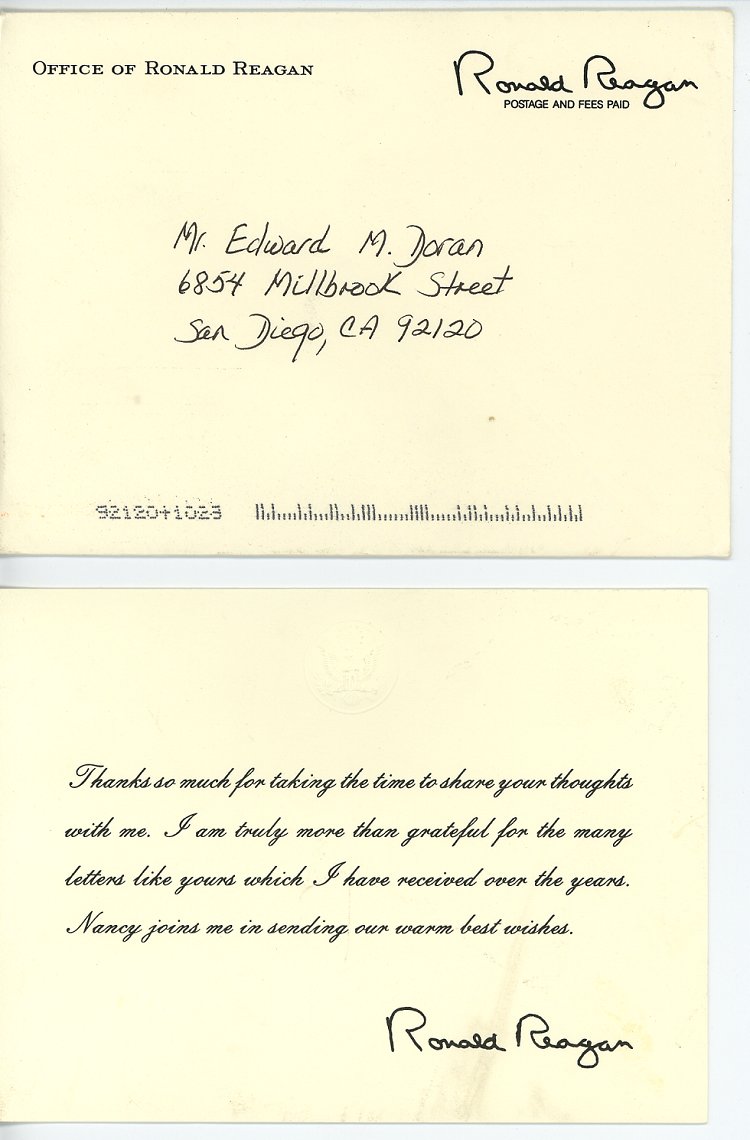 OFFICE OF RONALD REAGAN
Ronald Reagan
POSTAGE AND FEES PAID
Mr. Edward M. Doran
6854 Millbrook Street
San Diego, CA 92120
92120+1023
Thanks so much for taking the time to share your thoughts
with me. I am truly more than grateful for the many
letters like yours which I have received over the years.
Nancy joins me in sending our warm best wishes.
Ronald Reagan